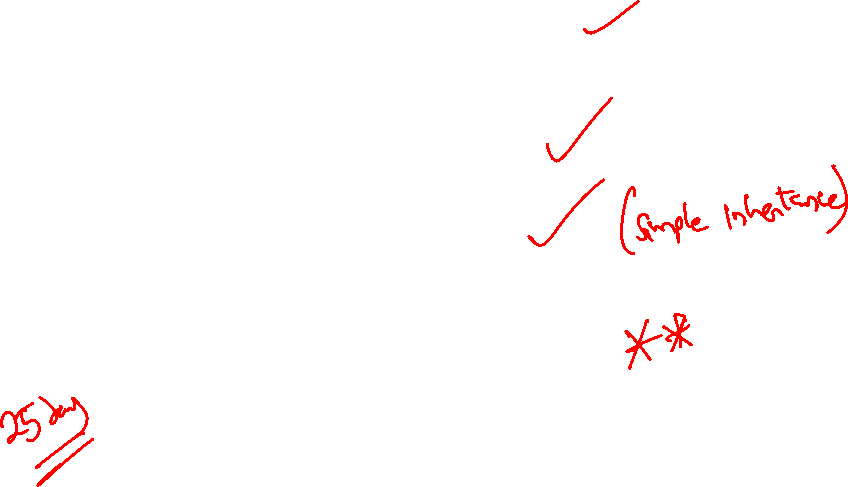 ✓
✓
✓ (simple Inheritance)
**
25 days